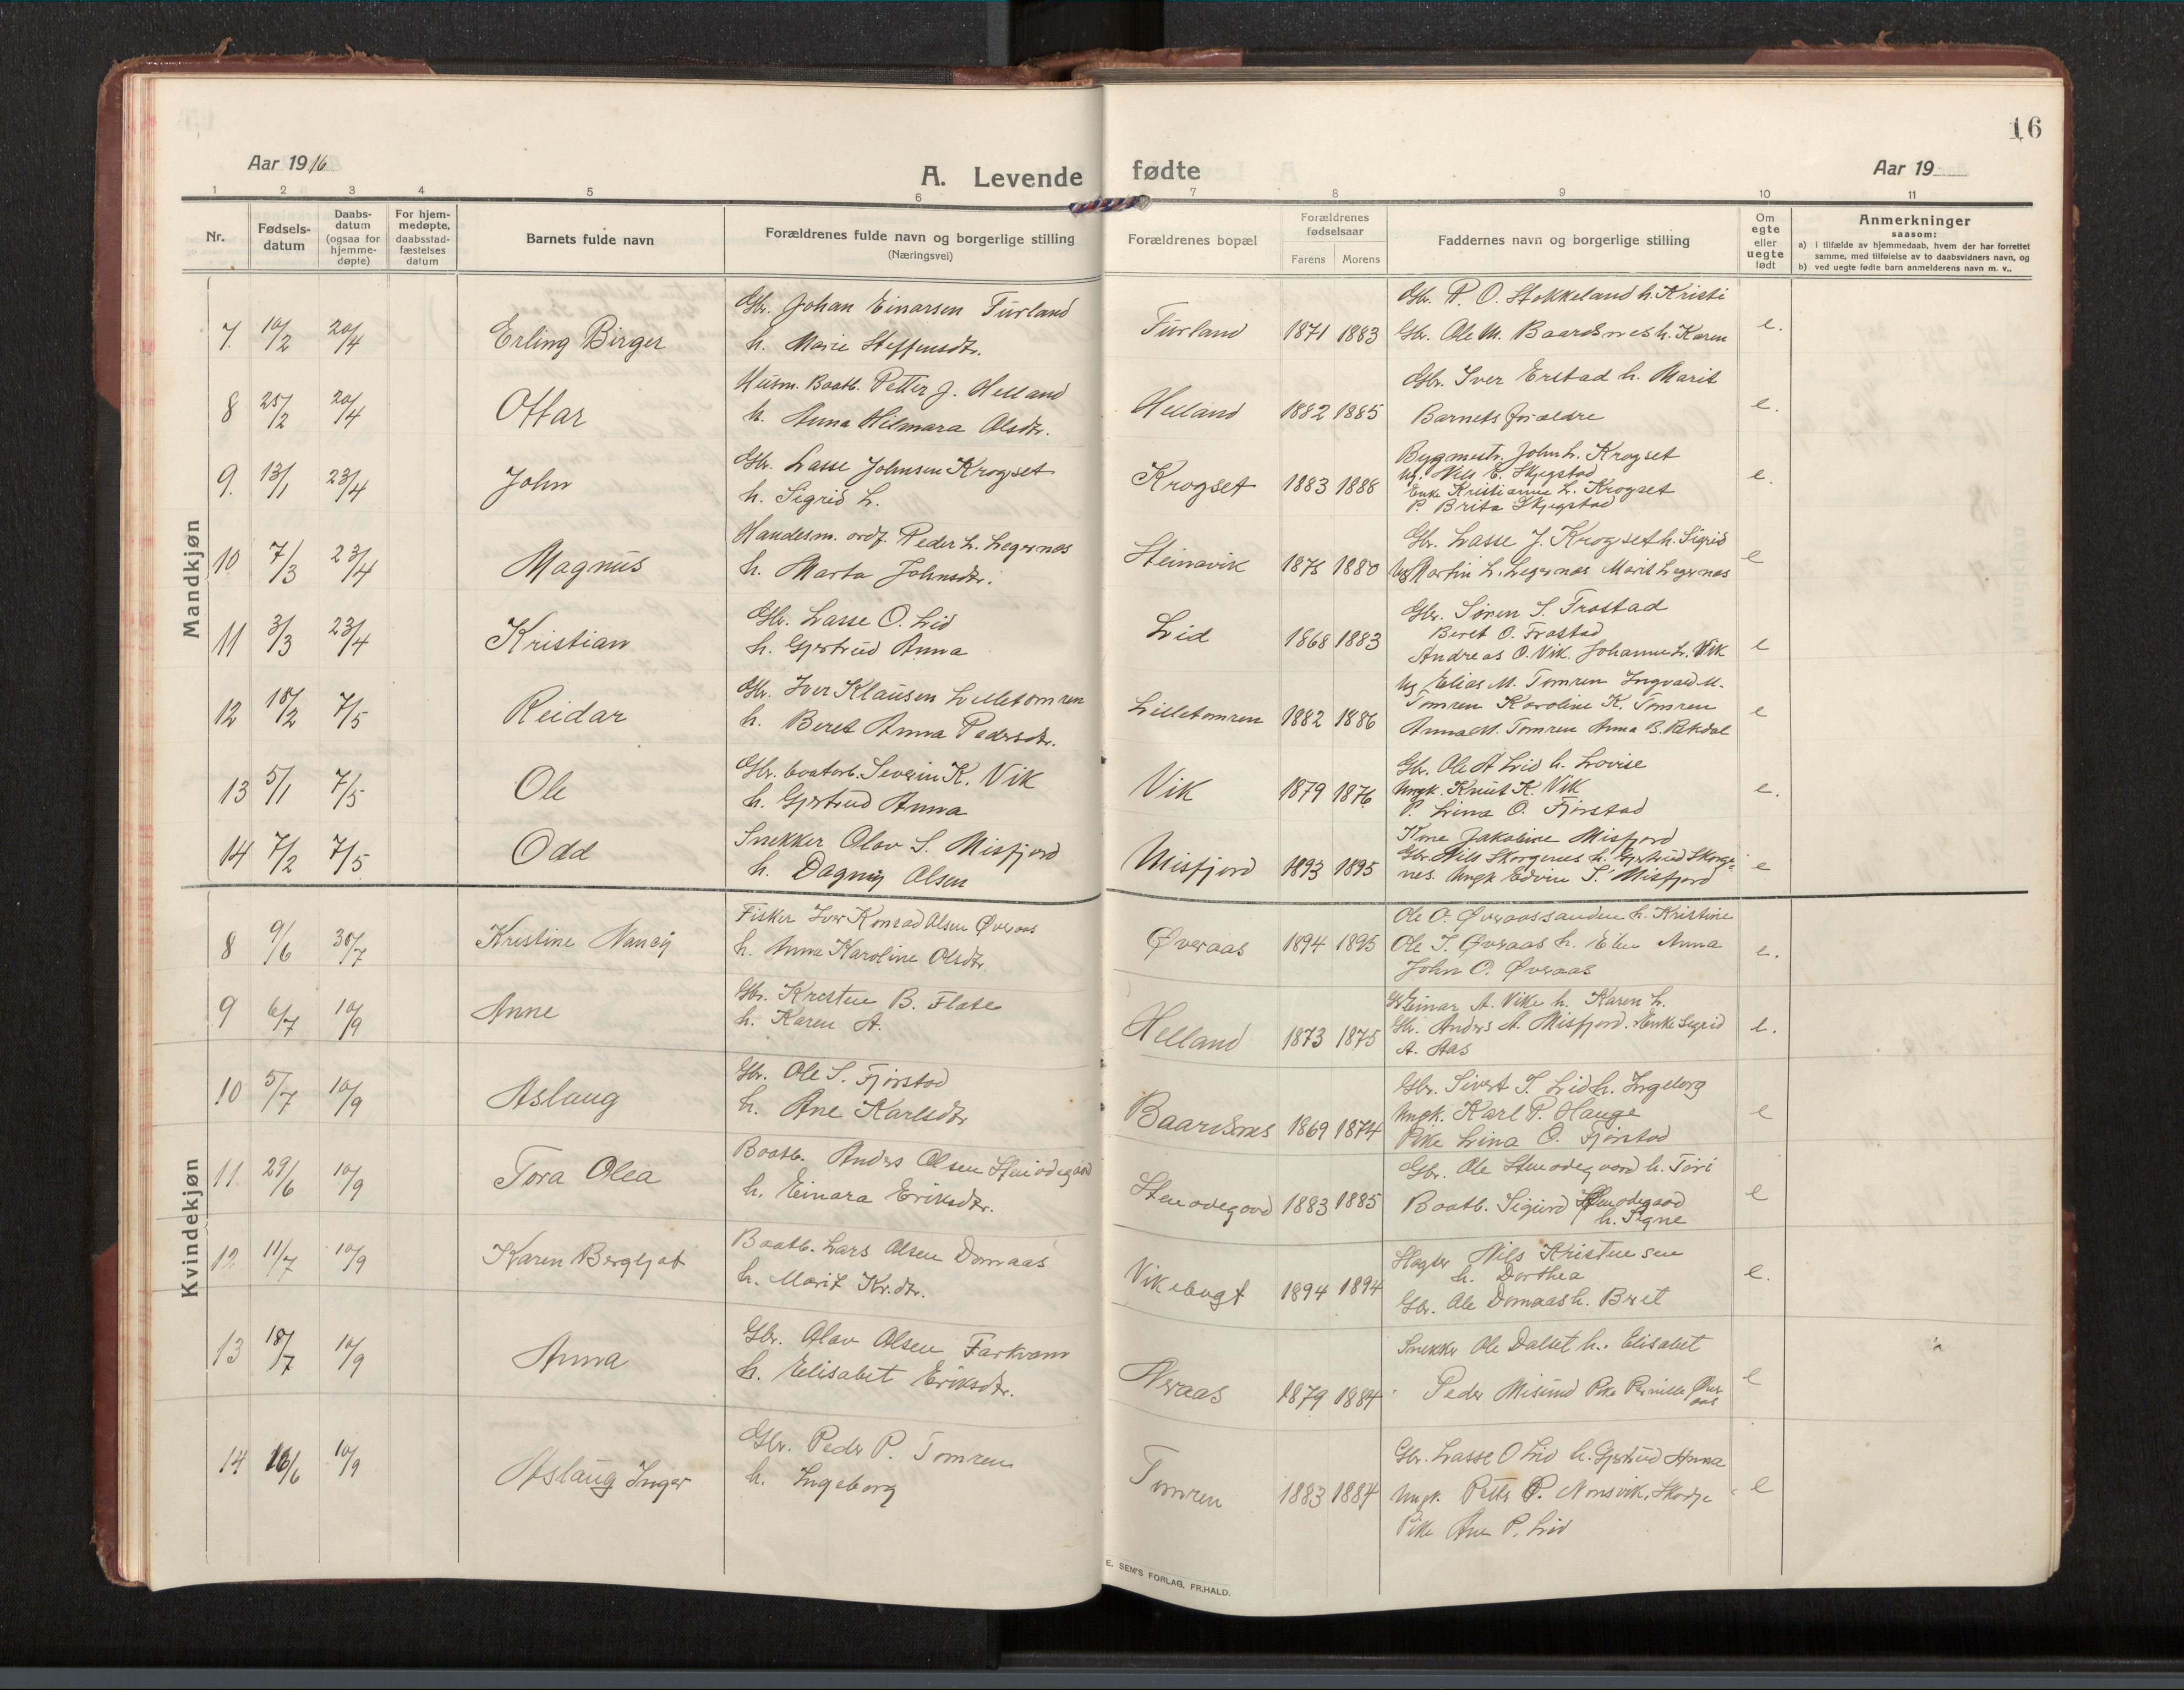 16
Aar 1916
A. Levende fødte
Aar 19
1 2 3 4 5 6 7 8 9 10 11
Nr.
Fødsels-
datum
Daabs-
datum
(ogsaa for
hjemme-
døpte)
For hjem-
medøpte,
daabsstad-
fæstelses
datum
Barnets fulde navn
Forældrenes fulde navn og borgerlige stilling
(Næringsvei)
Forældrenes bopæl
Forældrenes
fødselsaar
Farens Morens
Faddernes navn og borgerlige stilling
Om
egte
eller
uegte
født
Anmerkninger
saasom:
a) i tilfælde av hjemmedaab, hvem der har forrettet
samme, med tilføielse av to daabsvidners navn, og
b) ved uegte fødte barn anmelderens navn m. v..
Mandkjøn
7. 10/2 20/4 Erling Birger
Gbr. Johan Einarsen Turland
h. Marie Steffensdtr.
Turland 1871 1883
Gbr. P. O. Stokkeland h. Kristi
Gbr. Ole M. Baardsnes h. Karen
e.
8 25/2 20/4 Ottar
Husm. Baatb. Petter J. Helland
h. Anna Hilmara Olsdtr.
Helland 1882 1885
Gbr. Iver Erstad h. Marit
Barnets forældre
e.
9. 13/1 23/4 John
Gbr. Lasse Johnsen Krogset
h. Sigrid L.
Krogset 1883 1888
Bygmestr. John L. Krogset
Ug. Nils E. Skjegstad
Enke Kristianne L. Krogset
P. Brita Skjegstad
e.
10 7/3 23/4 Magnus
Handesm. ordf. Peder L. Legernes
h. Marta Johnsdtr.
Steinsvik 1875 1880
Gbr. Lasse J. Krogset h. Sigrid
Ug Martin L. Legernes Marit Legernes
e
11 3/3 23/4 Kristian
Gbr. Lasse O. Lid
h. Gjertrud Anna
Lid 1868 1883
Gbr. Søren S. Frostad
Beret O. Frostad
Andreas O. Vik. Johanne L. Vik
e
12 18/2 7/5 Reidar
Gbr. Iver Klausen Lilletomren
h. Beret Anna Pedersdtr.
Lilletomren 1882 1886
Ug Elias M. Tomren Ingvald M.
Tomren Karoline K. Tomren
Anna M. Tomren Anna B. Rekdal
e
13 5/1 7/5 Ole
Gbr. baatb. Severin K. Vik
h. Gjertrud Anna
Vik 1879 1876
Gbr. Ole A Lid h. Lovise
Ungk. Knut K. Vik
P. Lina O. Fjørstad
e.
14 7/2 7/5 Odd
Snekker Olav S. Misfjord
h. Dagny Olsen
Misfjord 1893 1895
Kone Jakobine Misfjord
Gbr. Nils Skorgenes h. Gjertrud Skorge-
nes. Ungk Edvin S. Misfjord
e
Kvindekjøn
8 9/6 30/7 Kristine Nancy
Fisker Iver Konrad Olsen Øveraas
h. Anna Karoline Olsdtr.
Øveraas 1894 1895
Ole O. Øveraassanden h. Kristine
Ole I. Øveraas h. Elen Anna
John O. Øveraas
e.
9 6/7 10/9 Anne
Gbr. Kresten B. Flate
h. Karen A.
Helland 1873 1875
Gbr Einar A. Vike h. Karen L.
Gbr. Anders A. Misfjord. Enke Sigrid
A. Aas
e.
10 5/7 10/9 Aslaug
Gbr. Ole S. Fjørstad
h. Ane Karlsdtr
Baardsnes 1869 1874
Gbr. Sivert I. Lid h. Ingeborg
Ungk. Karl P. Hauge
Pike Lina O. Fjørstad
e
11 29/6 10/9 Tora Olea
Baatb. Anders Olsen Stenødegaard
h. Einara Eriksdtr.
Stenødegaard 1883 1885
Gbr. Ole Stenødegaard h. Turi
Baatb. Sigurd Stenødegaard
h. Signe
e
12 11/7 10/9 Karen Bergljot
Baatb. Lars Olsen Domaas
h. Marit Kr.dtr.
Vikebugt 1894 1894
Slagter Nils Kristensen
h. Dorthea
Gbr. Ole Domaas h. Beret
e.
13 18/7 10/9 Anna
Gbr. Olav Olsen Farkvam
h. Elisabet Eriksdtr.
Øveraas 1879 1884
Snekker Ole Dalset h. Elisabet
Peder Misund Pike Pernille Øver
aas
e
14 16/6 10/9 Aslaug Inger
Gbr. Peder P. Tomren
h. Ingeborg
Tomren 1883 1884
Gbr. Lasse O Lid h. Gjertrud Anna
Ungk. Petter P. Nonsvik, Skodje
Pike Ane P. Lid
e
E. SEM'S FORLAG, FR.HALD.